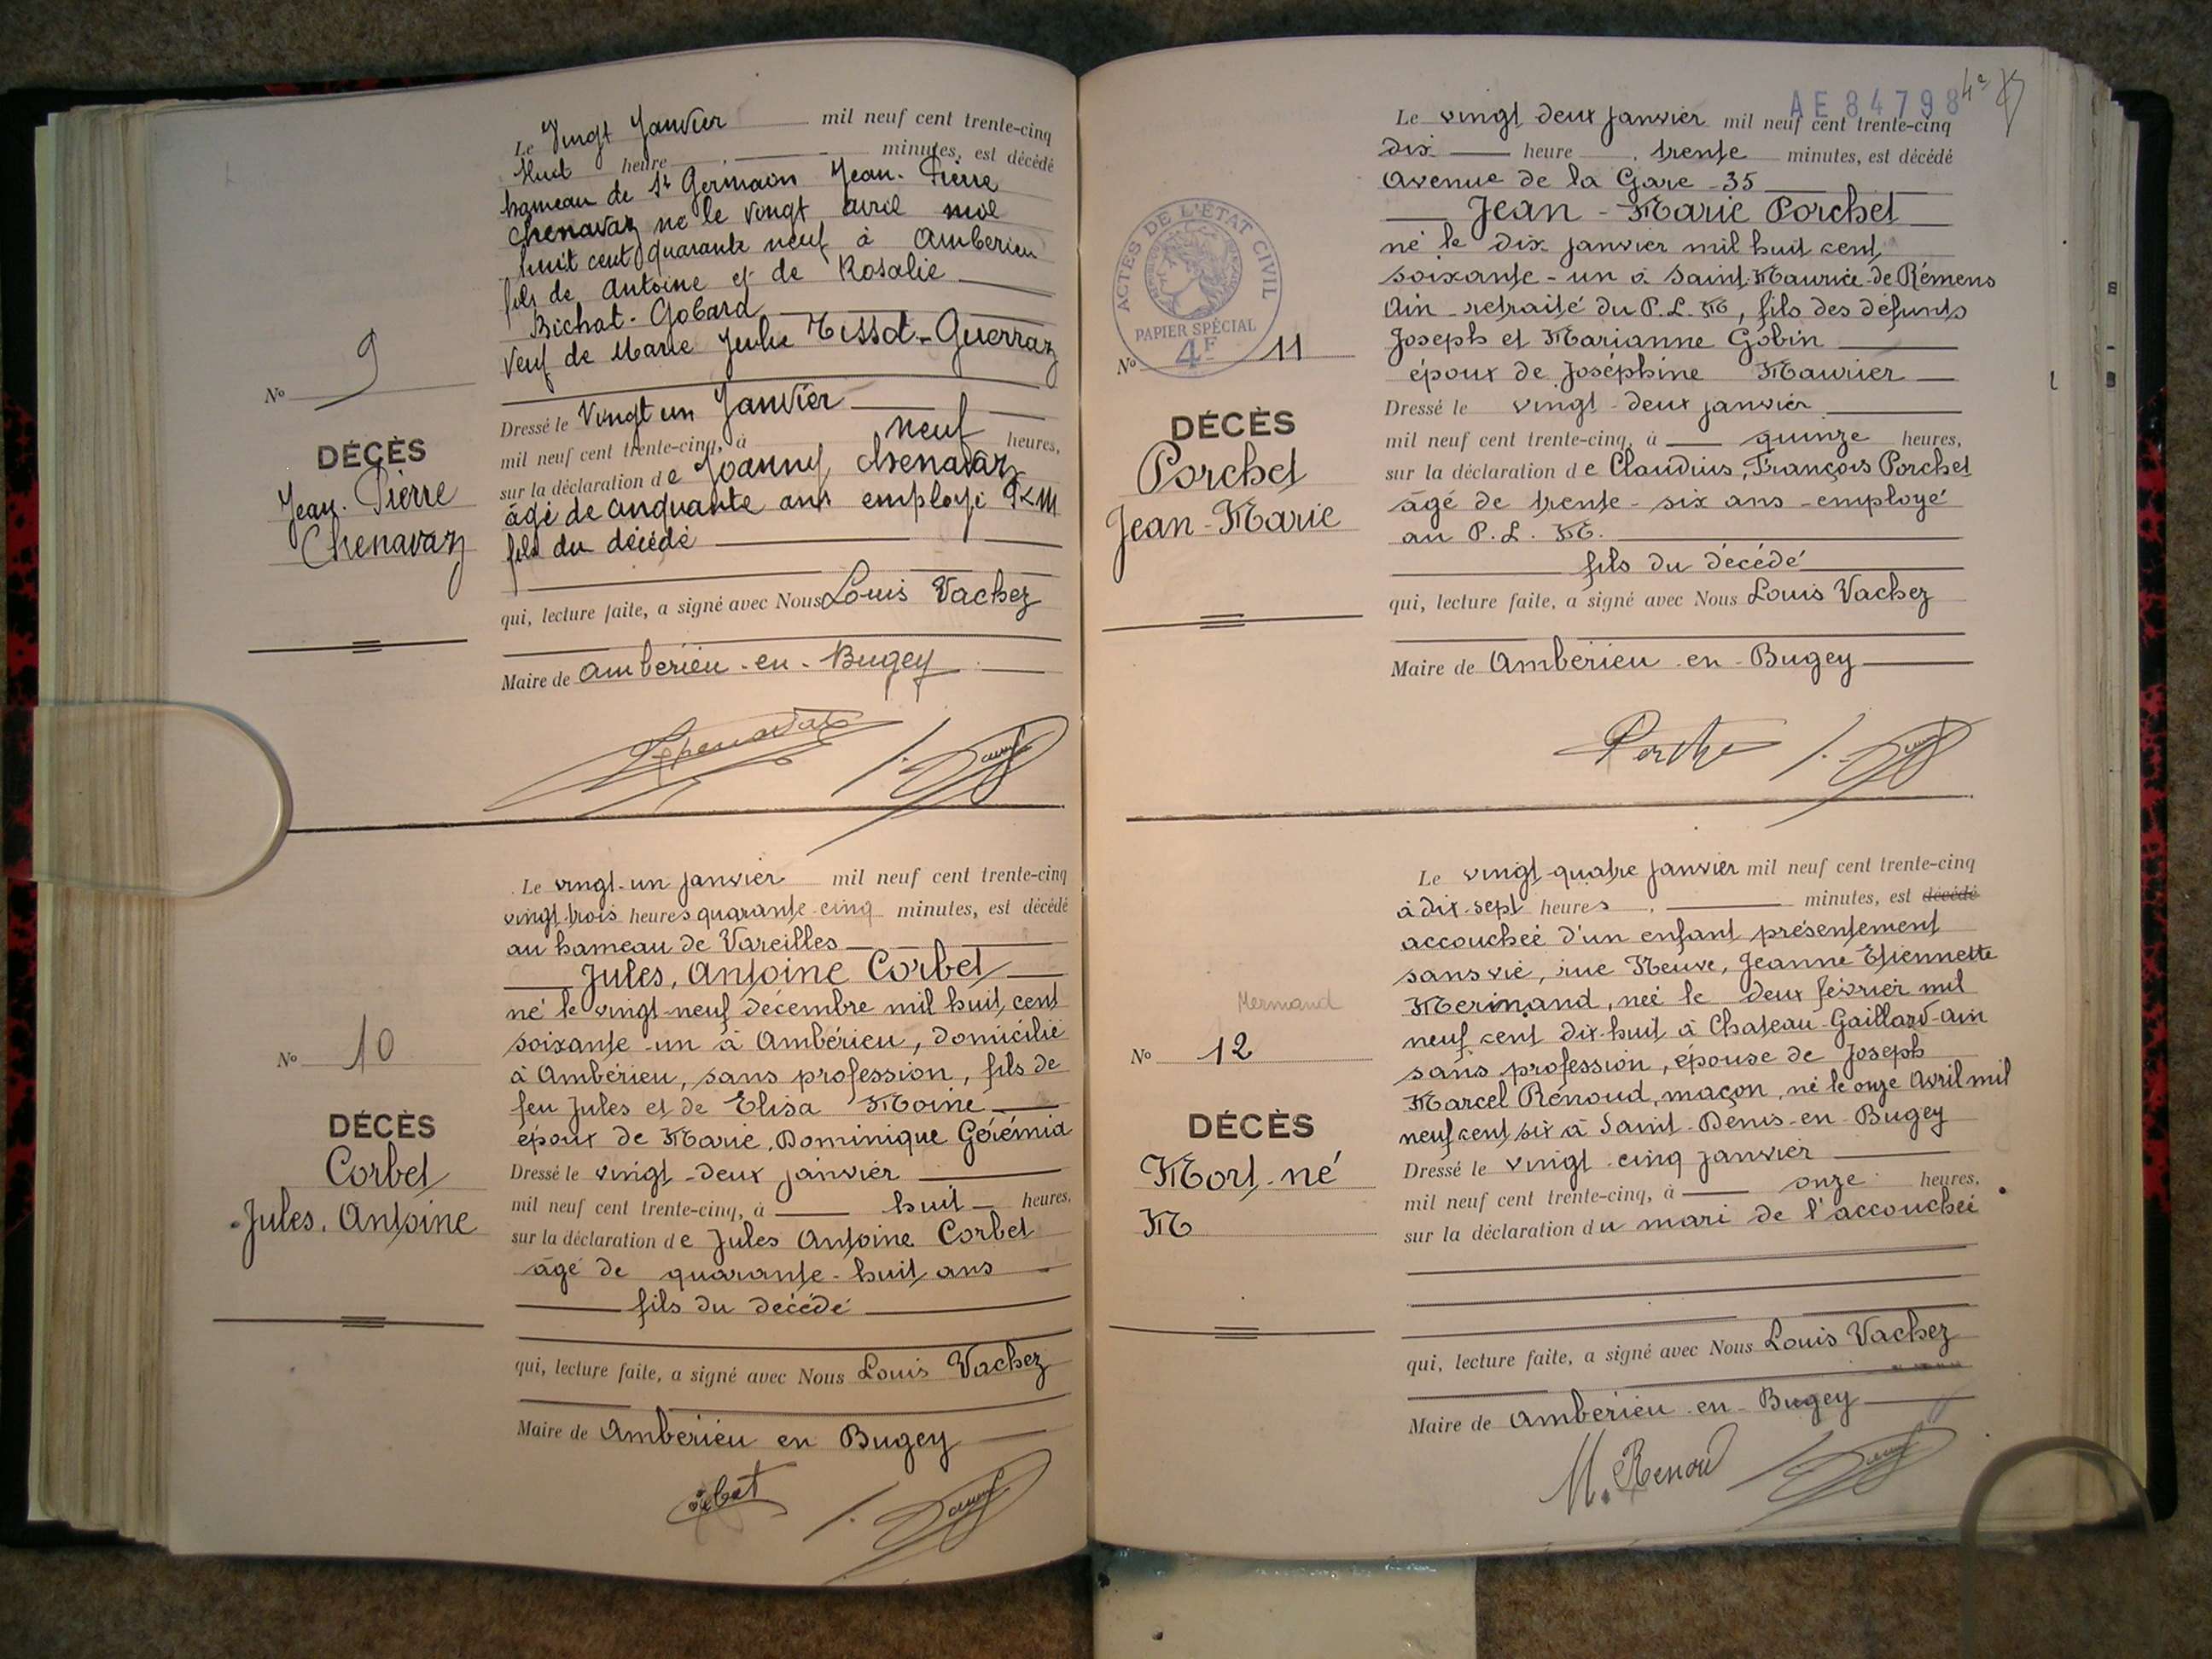 Le Vingt Janvier mil neuf cent trente-cinq
Huit heure minutes, est décédé
hameau de St Germain Jean-Pierre
Chenavaz né le vingt avril mil
huit cent quarante neuf à Amberieu
fils de Antoine et de Rosalie
Bichat-Gobard
Veuf de Marie Julie Tissot-Guerraz
No 9
DÉCÈS
Jean-Pierre
Chenavaz
Dressé le Vingt un Janvier
mil neuf cent trente-cinq, à neuf heures,
sur la déclaration de Joanny Chenavaz
âgé de cinquante ans employé PLM
fils du décédé
qui, lecture faite, a signé avec Nous Louis Vachez
Maire de Amberieu-en-Bugey
Chenavaz
Le vingt-un janvier mil neuf cent trente-cinq
vingt trois heures quarante-cinq minutes, est décédé
au hameau de Vareilles
Jules, Antoine Corbet
né le vingt-neuf décembre mil huit cent
soixante-un à Ambérieu, domicilié
à Ambérieu, sans profession, fils de
feu Jules et de Elisa Moine
époux de Marie, Dominique Gérémia
No 10
DÉCÈS
Corbet
Jules, Antoine
Dressé le vingt-deux janvier
mil neuf cent trente-cinq, à huit heures,
sur la déclaration de Jules Antoine Corbet
âgé de quarante-huit ans
fils du décédé
qui, lecture faite, a signé avec Nous Louis Vachez
Maire de Ambérieu en Bugey
AE84798
4e
Le vingt deux janvier mil neuf cent trente-cinq
dix heure, trente minutes, est décédé
Avenue de la Gare-35
Jean-Marie Porchet
né le dix janvier mil huit cent
soixante-un à Saint-Maurice-de-Rémens
Ain-retraité du P.L.M, fils des défunts
Joseph et Marianne Gobin
époux de Joséphine Maurier
ACTES DE L'ÉTAT CIVIL
PAPIER SPÉCIAL
4F
No 11
DÉCÈS
Porchet
Jean-Marie
Dressé le vingt-deux janvier
mil neuf cent trente-cinq, à quinze heures,
sur la déclaration de Claudius, François Porchet
âgé de trente-six ans-employé
au P.L.M.
fils du décédé
qui, lecture faite, a signé avec Nous Louis Vachez
Maire de Ambérieu-en-Bugey
Porchet
Le vingt-quatre janvier mil neuf cent trente-cinq
à dix-sept heures, minutes, est décédé
accouchée d'un enfant présentement
sans vie, rue Neuve, Jeanne Etiennette
Mermand, née le deux février mil
neuf cent dix-huit à Chateau-Gaillard-Ain
sans profession, épouse de Joseph
Marcel Rénoud, maçon, né le onze Avril mil
neuf cent six à Saint-Denis-en-Bugey
Mermand
No 12
DÉCÈS
Mort-né
M
Dressé le vingt-cinq janvier
mil neuf cent trente-cinq, à onze heures,
sur la déclaration du mari de l'accouchée
qui, lecture faite, a signé avec Nous Louis Vachez
Maire de Ambérieu-en-Bugey
M. Renoud